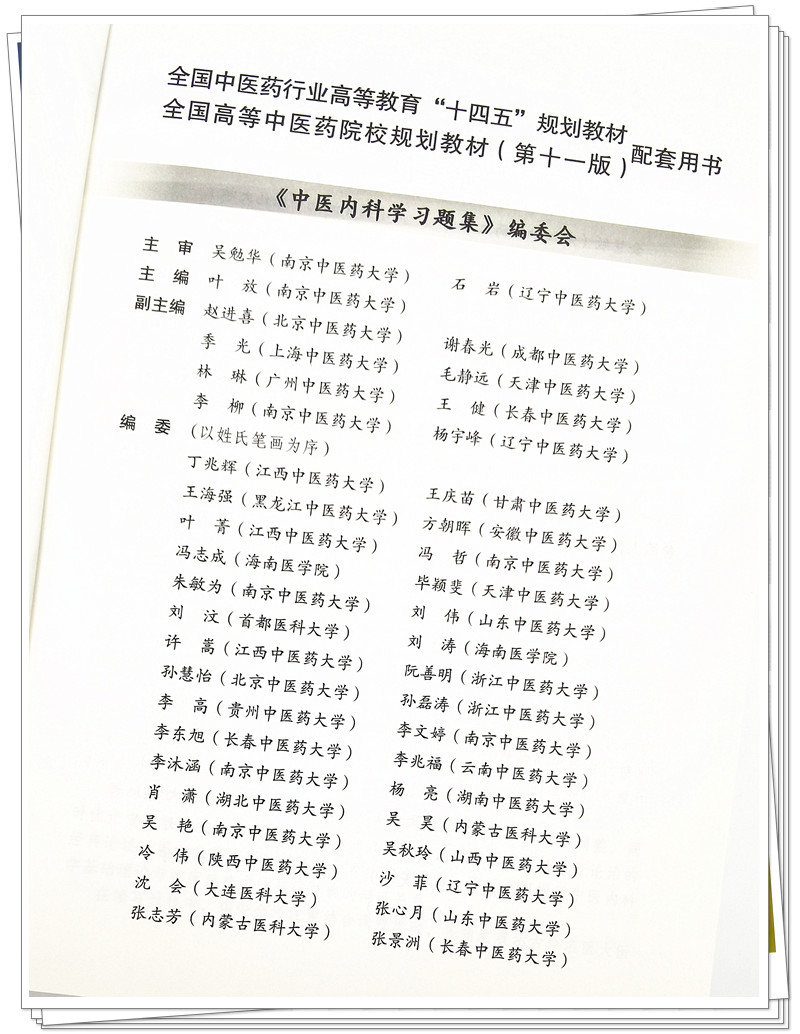 全国中医药行业高等教育“十四五”规划教材
全国高等中医药院校规划教材（第十一版）配套用书
《中医内科学习题集》编委会
主　审　吴勉华（南京中医药大学）
主　编　叶　放（南京中医药大学）　石　岩（辽宁中医药大学）
副主编　赵进喜（北京中医药大学）
季　光（上海中医药大学）　谢春光（成都中医药大学）
林　琳（广州中医药大学）　毛静远（天津中医药大学）
李　柳（南京中医药大学）　王　健（长春中医药大学）
编　委　（以姓氏笔画为序）　杨宇峰（辽宁中医药大学）
丁兆辉（江西中医药大学）　王庆苗（甘肃中医药大学）
王海强（黑龙江中医药大学）　方朝晖（安徽中医药大学）
叶　菁（江西中医药大学）　冯　哲（南京中医药大学）
冯志成（海南医学院）　毕颖斐（天津中医药大学）
朱敏为（南京中医药大学）　刘　伟（山东中医药大学）
刘　汶（首都医科大学）　刘　涛（海南医学院）
许　嵩（江西中医药大学）　阮善明（浙江中医药大学）
孙慧怡（北京中医药大学）　孙磊涛（浙江中医药大学）
李　高（贵州中医药大学）　李文婷（南京中医药大学）
李东旭（长春中医药大学）　李兆福（云南中医药大学）
李沐涵（南京中医药大学）　杨　亮（湖南中医药大学）
肖　潇（湖北中医药大学）　吴　昊（内蒙古医科大学）
吴　艳（南京中医药大学）　吴秋玲（山西中医药大学）
冷　伟（陕西中医药大学）　沙　菲（辽宁中医药大学）
沈　会（大连医科大学）　张心月（山东中医药大学）
张志芳（内蒙古医科大学）　张景洲（长春中医药大学）